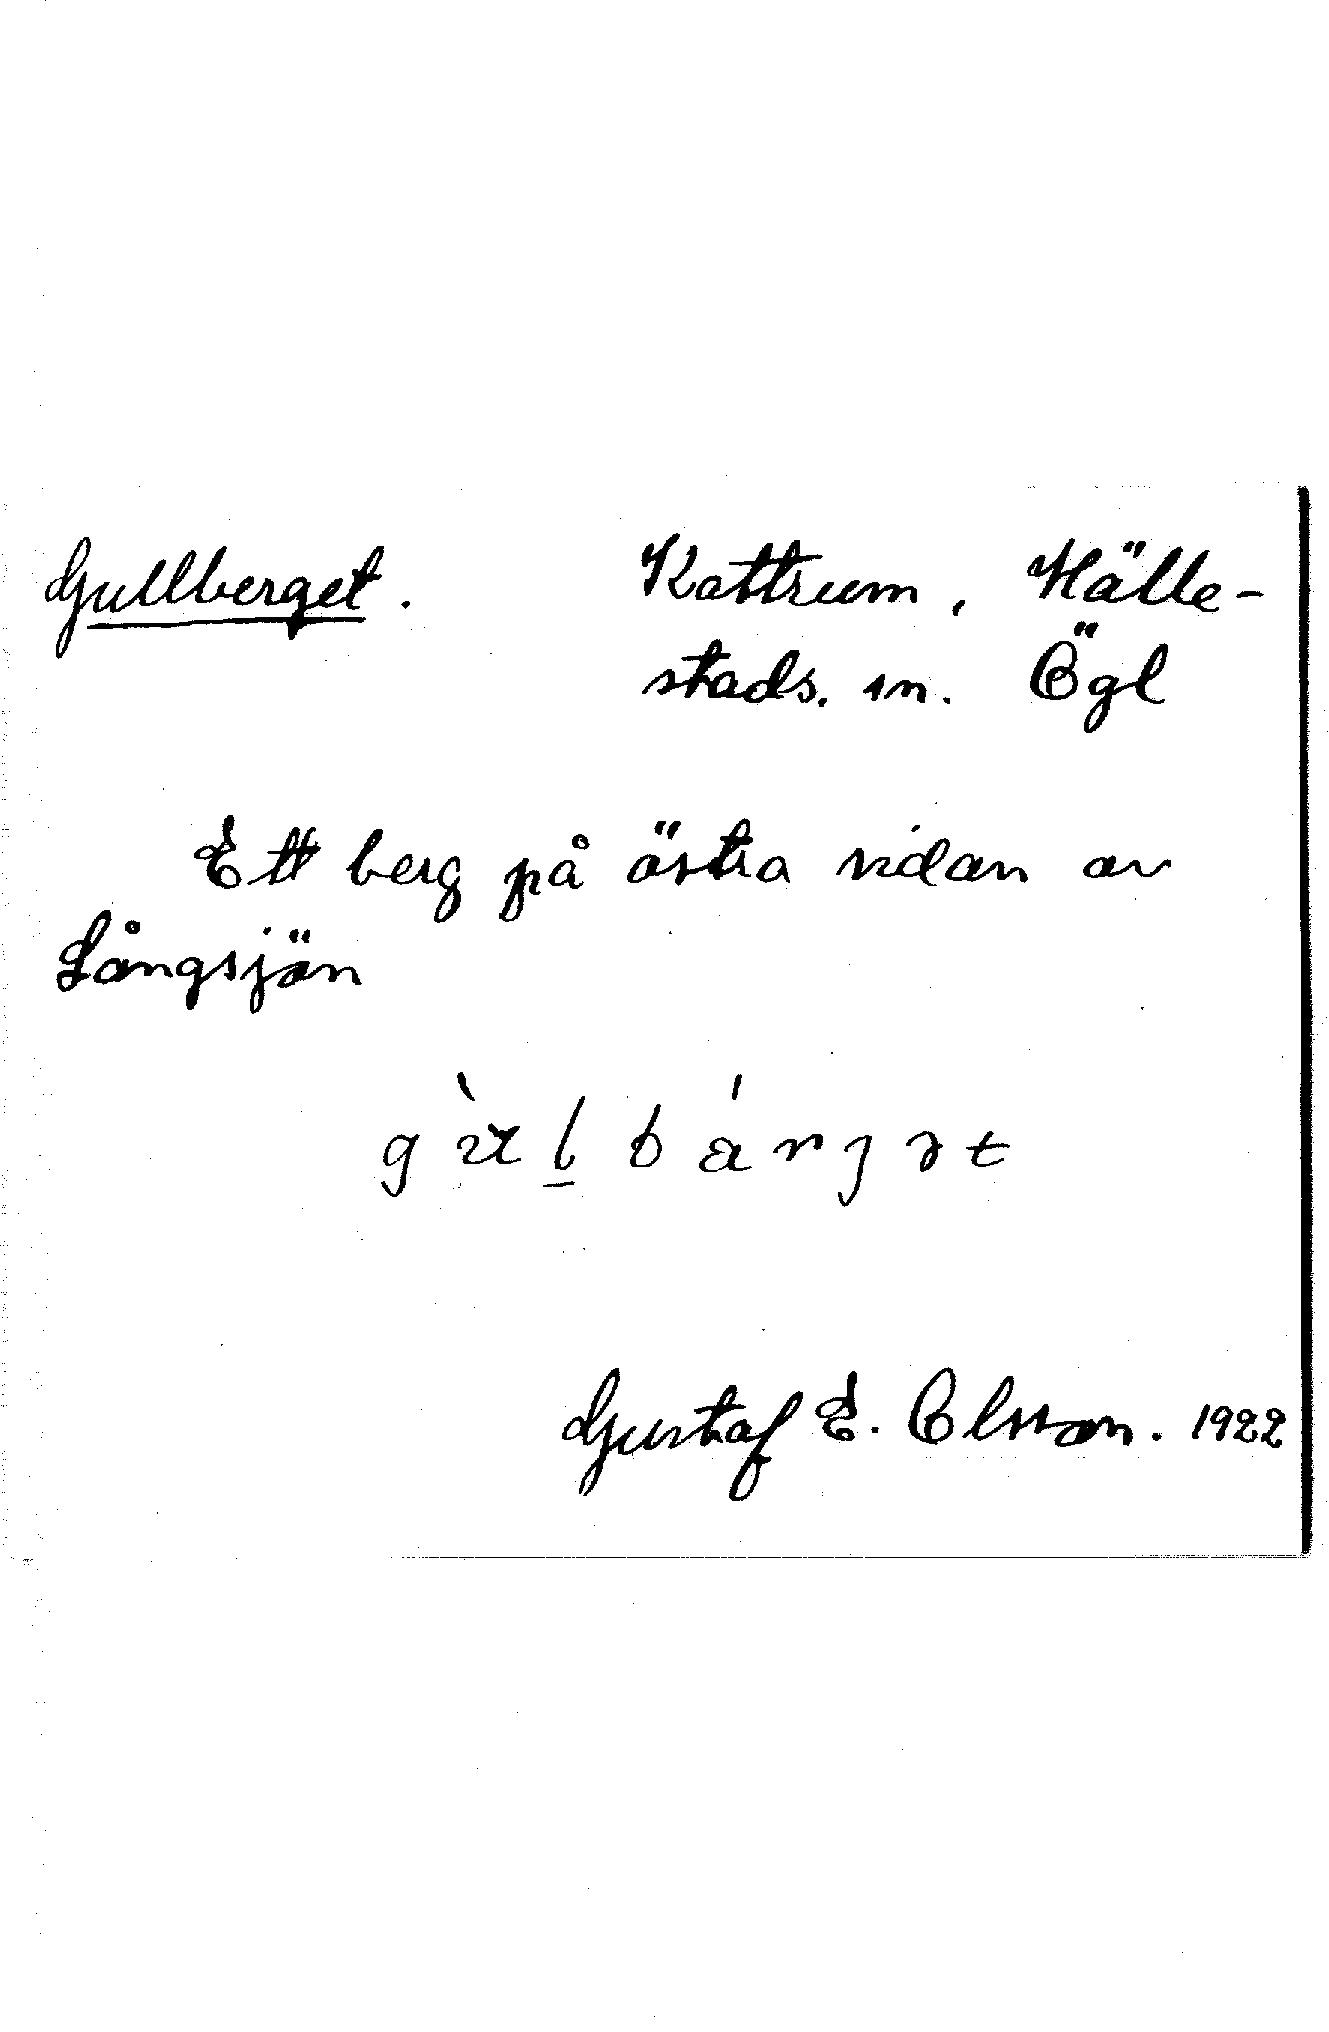 Gullberget. Kattrum, Hälle-
stads. sn. Ögl
Ett berg på östra sidan av
Långsjön
Gustaf E. Olsson. 1922